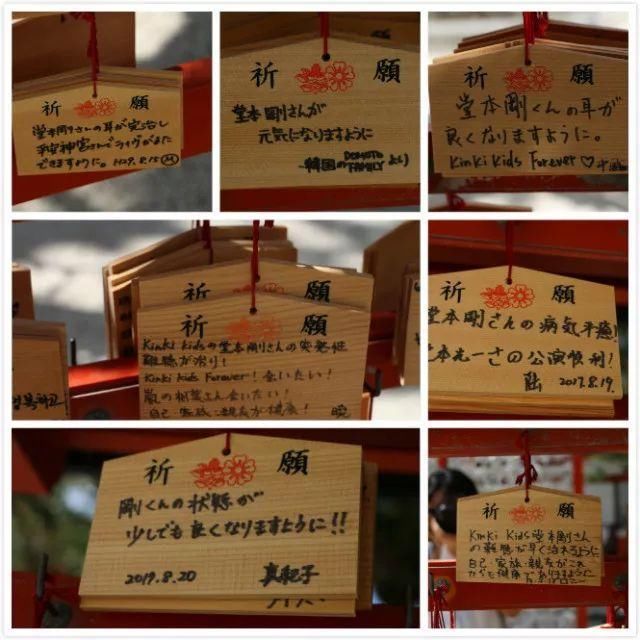 祈願
堂本剛さんの耳が完治し
平安神宮さんでライヴがまた
できますように。H29.8.15
祈願
堂本剛さんが
元気になりますように
韓国の DOMOTO FAMILY より
祈願
堂本剛くんの耳が
良くなりますように。
KinKi Kids Forever♡
祈願
祈願
KinKi Kidsの堂本剛さんの突発性
難聴が治り!
KinKi Kids Forever! 会いたい!
嵐の相葉さん会いたい!
自己・家族・親友が健康!
祈願
堂本剛さんの病気平癒!
堂本光一さの公演順利!
2017.8.19.
祈願
剛くんの状態が
少しでも良くなりますように!!
2017.8.20 真紀子
祈願
KinKi Kids 堂本剛さん
の難聴が早く治れるように
自己・家族・親友がこれ
からも健康でありますように